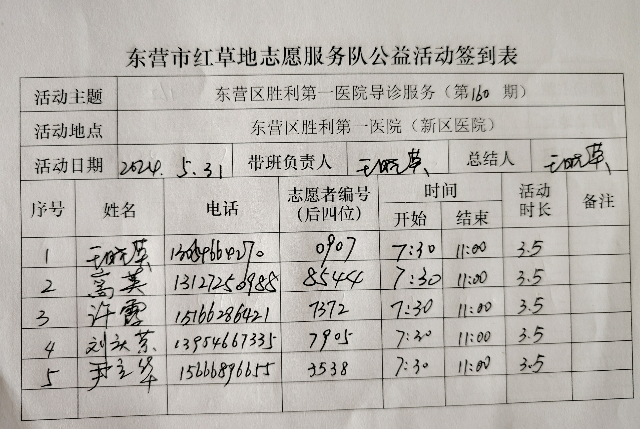 东营市红草地志愿服务队公益活动签到表
活动主题 东营区胜利第一医院导诊服务（第160 期）
活动地点 东营区胜利第一医院（新区医院）
活动日期 2024. 5.31 带班负责人 王晓英 总结人 王晓英
序号 姓名 电话 志愿者编号（后四位） 时间 活动时长 备注
开始 结束
1 王晓英 0907 7:30 11:00 3.5
2 高英 13127250988 8544 7:30 11:00 3.5
3 许霞 15166286421 7372 7:30 11:00 3.5
4 13954667335 7905 7:30 11:00 3.5
5 尹立华 15666896655 3538 7:30 11:00 3.5